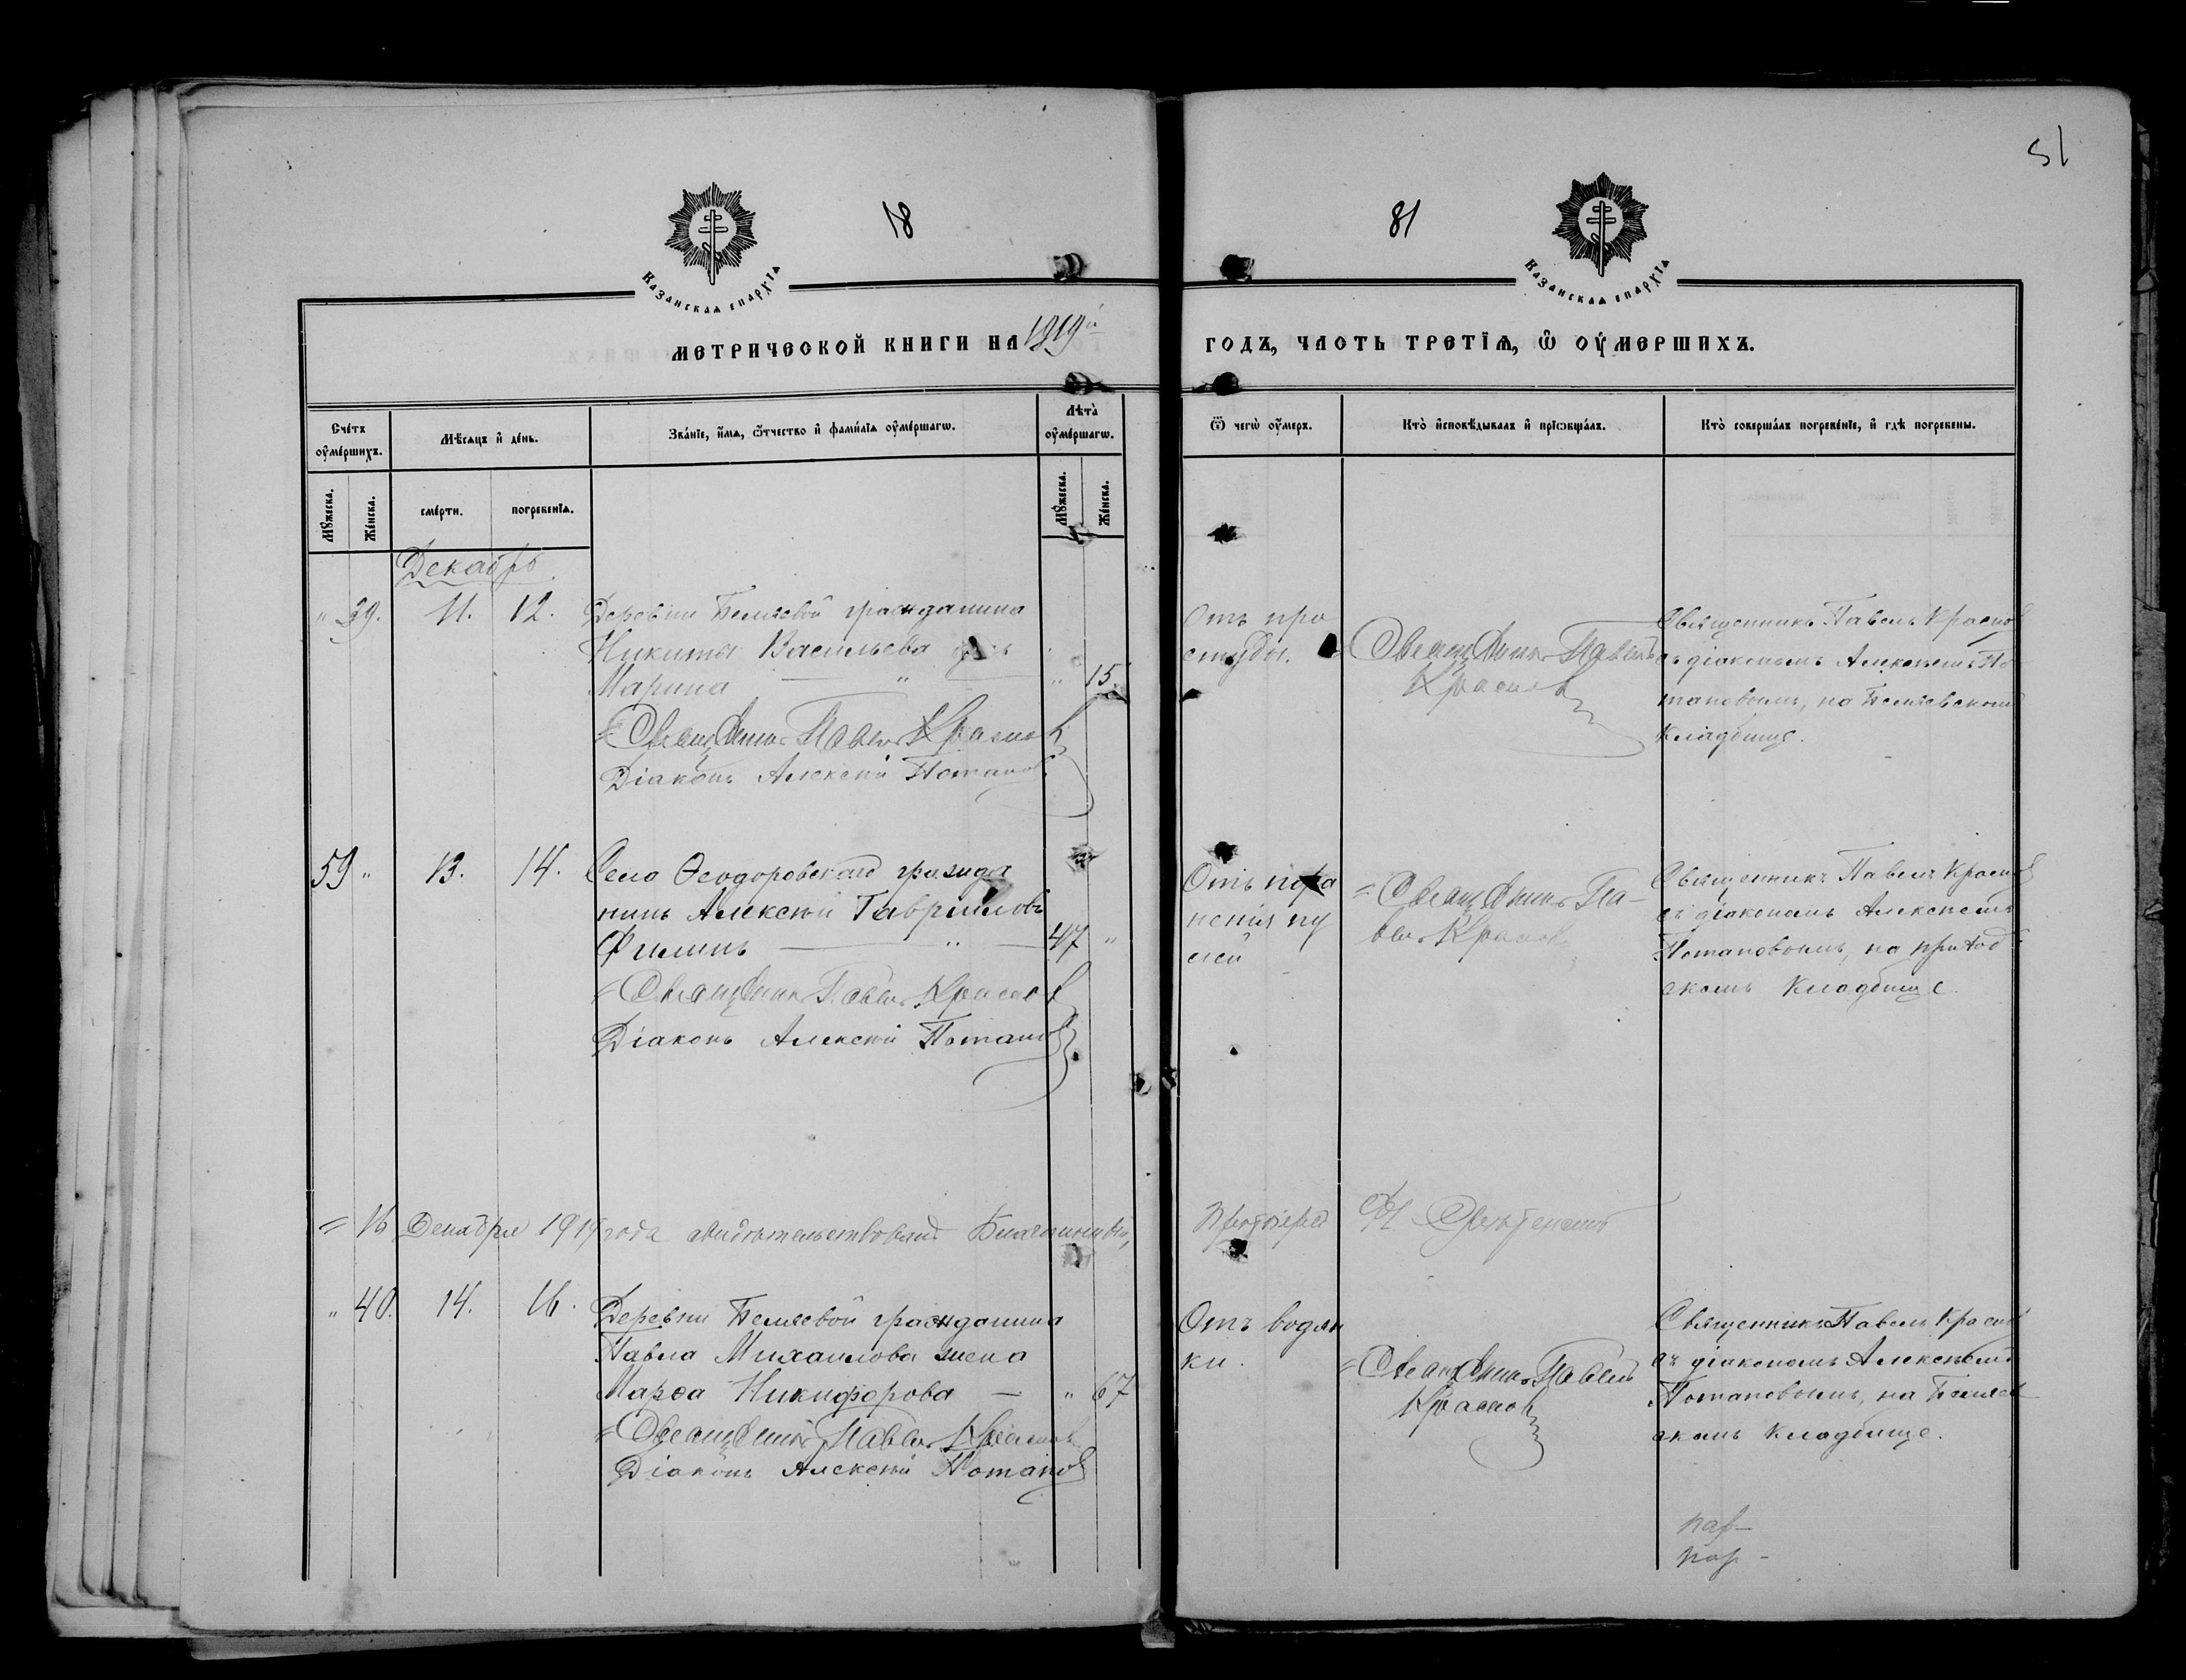 51
18
81
Казанская епархїа
Казанская епархїа
МЕТРИЧЕСКОЙ КНИГИ НА 1919й
ГОДЪ, ЧАСТЬ ТРЕТЇѦ, Ѽ ОУМЕРШИХЪ.
Сче́тъ оумершихъ.
Мѣсяцъ и день.
Званїе, имя, ѿтчество и фамилїя оумершагѡ.
Лѣта оумершагѡ.
Ѿ чегѡ оумеръ.
Кто исповѣдывалъ и прїѡбщалъ.
Кто совершалъ погребенїе, и гдѣ погребены.
Мужеска.
Женска.
смерти.
погребенїя.
Мужеска.
Женска.
Декабрь
" 39. 11. 12. Деревни Беляевой гражданина
Никиты Васильева дочь
Марина — " — " 15.
Священникъ Павелъ Краснов
Діаконъ Алексѣй Потапов
Отъ про
студы.
Священникъ Павелъ
Краснов
Священникъ Павелъ Краснов
съ діакономъ Алексѣемъ По
таповымъ, на Беляевскомъ
кладбище.
59 " 13. 14. Села Ѳеодоровскаго гражда
нинъ Алексѣй Гавриловъ
Филинъ — " — 47 "
Священникъ Павелъ Краснов
Діаконъ Алексѣй Потапов
Отъ пора
ненія пу
лей
Священникъ Па-
велъ Краснов
Священникъ Павелъ Краснов
съ діакономъ Алексѣемъ
Потаповымъ, на приход
скомъ кладбище.
16 Декабря 1919 года свидѣтельствовалъ Благочинный,
Протоіерей
" 40. 14. 16. Деревни Беляевой гражданина
Павла Михаилова жена
Марѳа Никифорова — " 67
Священникъ Павелъ Краснов
Діаконъ Алексѣй Потапов
Отъ водян
ки.
Священникъ Павелъ
Краснов
Священникъ Павелъ Краснов
съ діакономъ Алексѣемъ
Потаповымъ, на Беляев
скомъ кладбище.